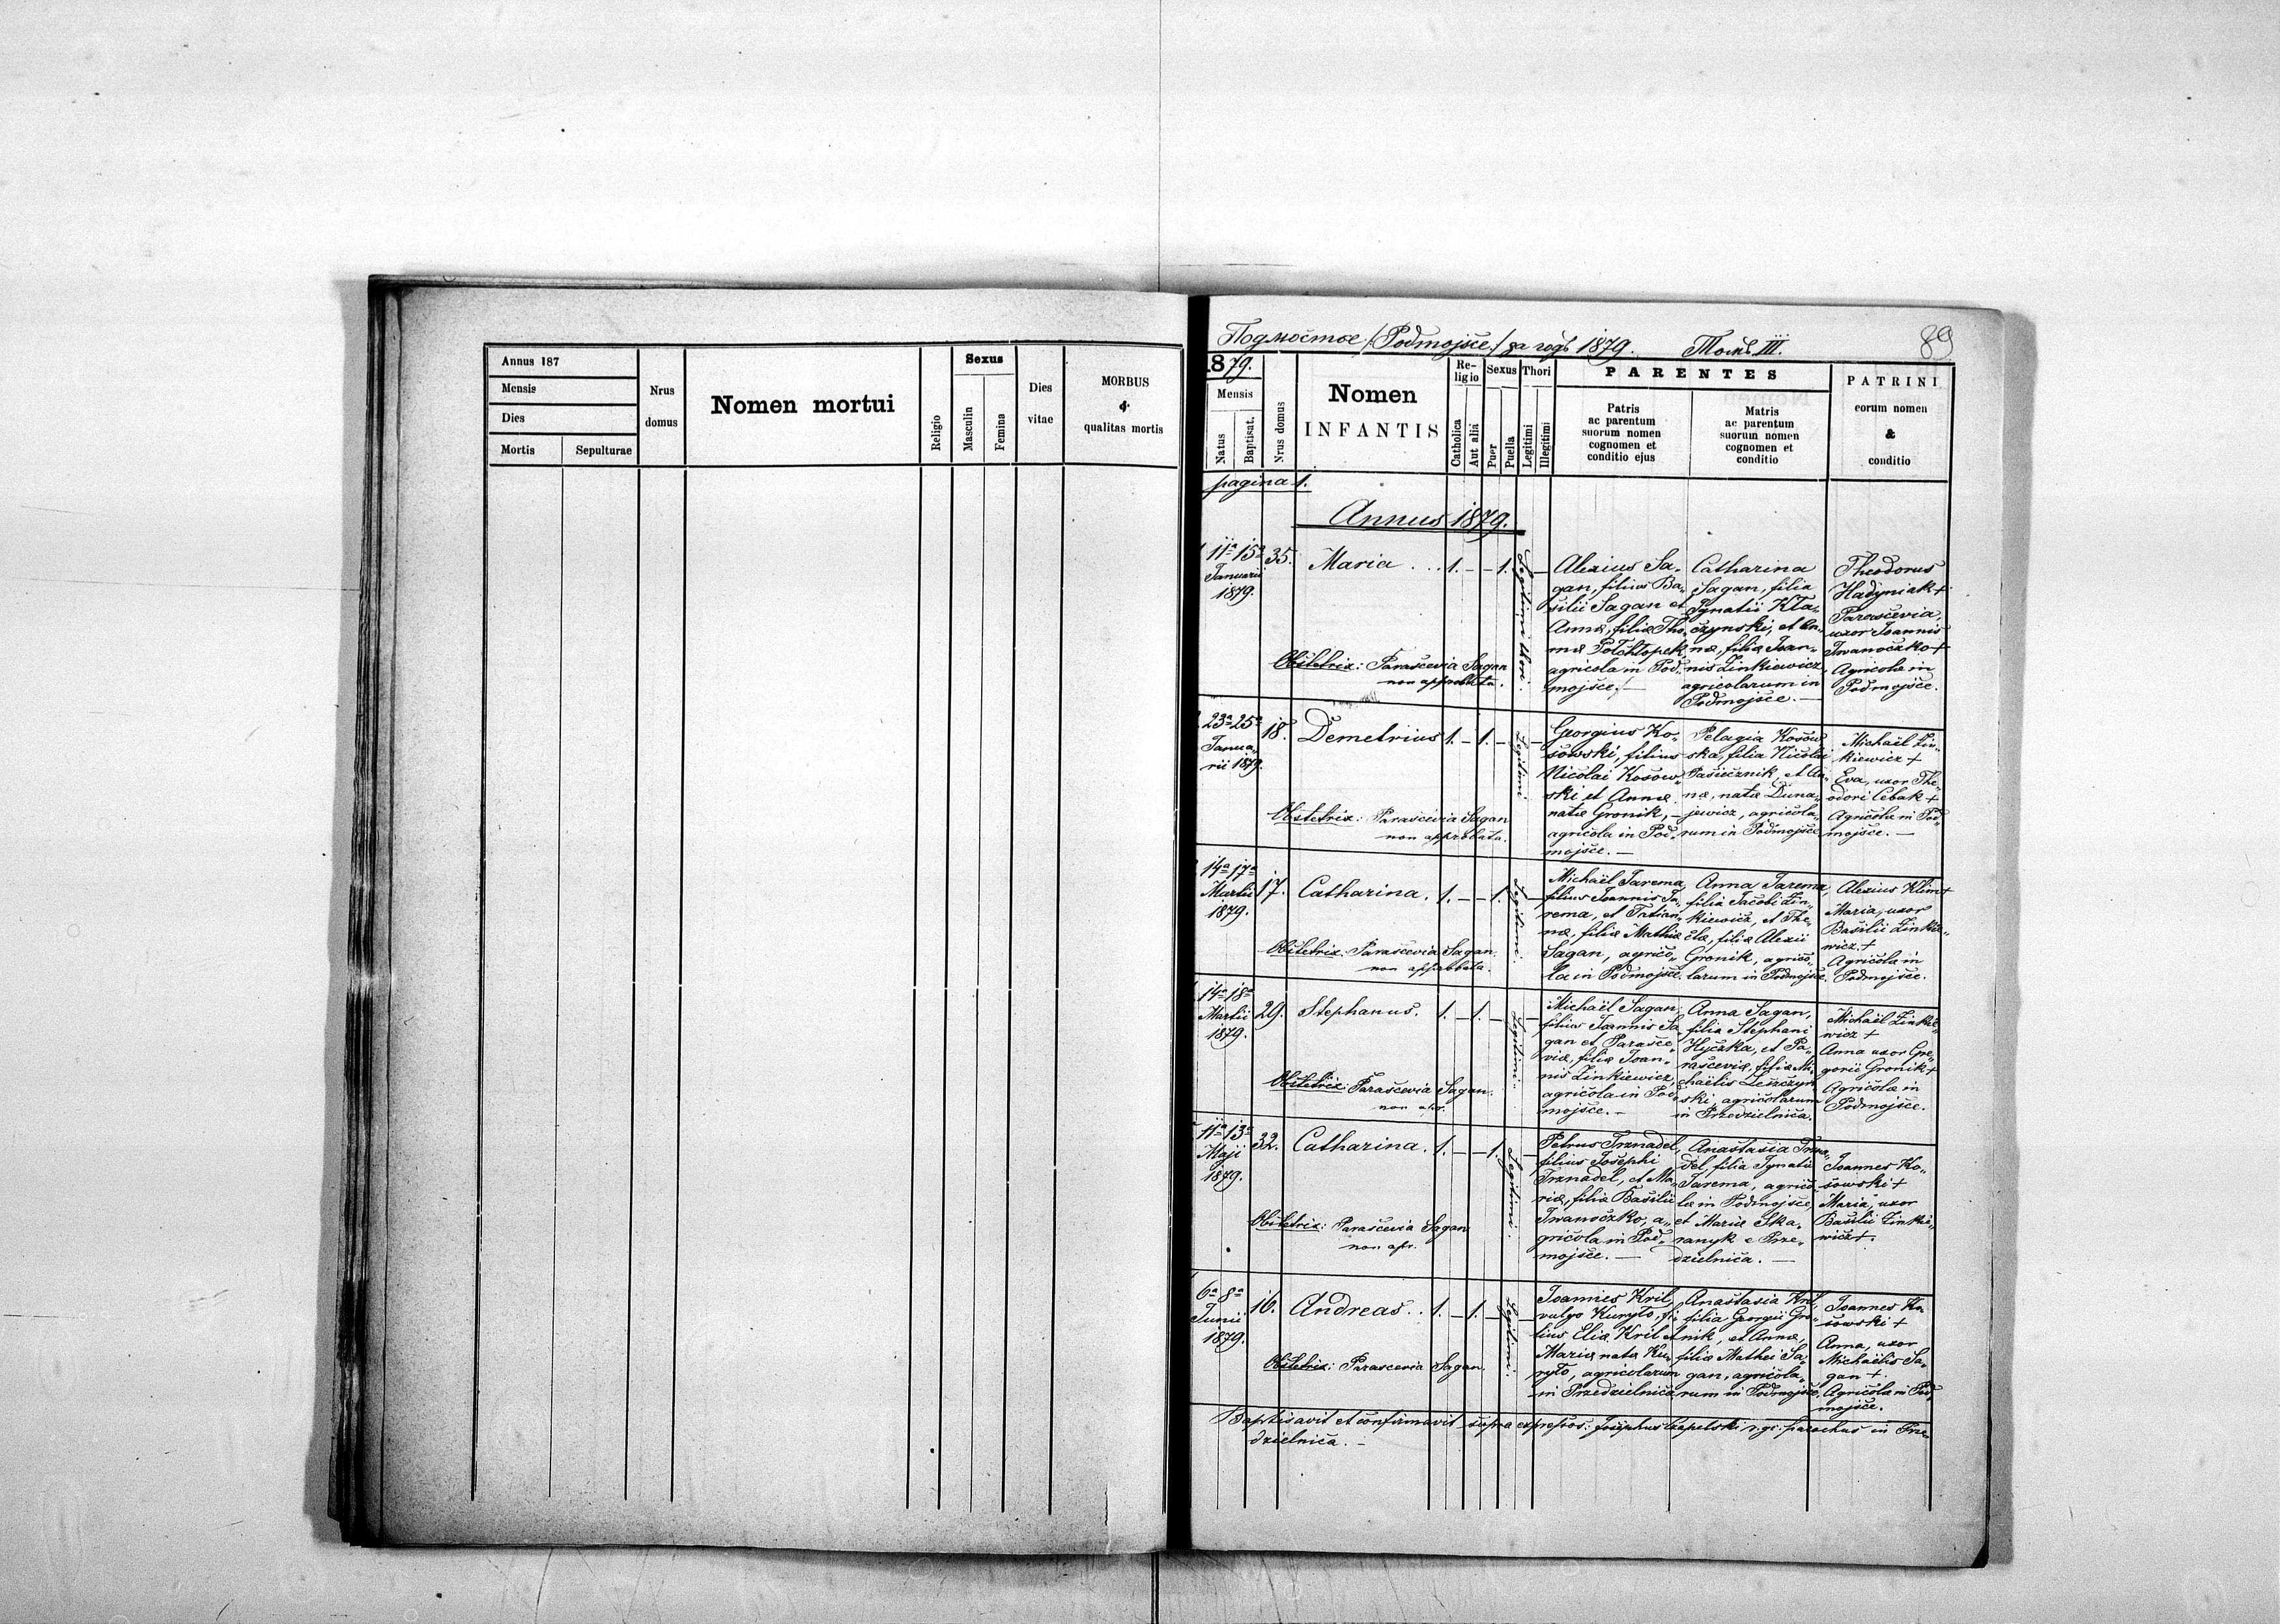 Annus 187
Mensis
Dies
Mortis
Sepulturae
Nrus
domus
Nomen mortui
Religio
Sexus
Masculin
Femina
Dies
vitae
MORBUS
&
qualitas mortis
Подмостье /Podmojsce/ за годъ 1879. Томъ III.
89
1879.
Mensis
Natus
Baptisat.
Nrus domus
Nomen
INFANTIS
Re-
ligio
Catholica
Aut alia
Sexus
Puer
Puella
Thori
Legitimi
Illegitimi
PARENTES
Patris
ac parentum
suorum nomen
cognomen et
conditio ejus
Matris
ac parentum
suorum nomen
cognomen et
conditio
PATRINI
eorum nomen
&
conditio
pagina 1.
Annus 1879.
11a 15a
Januarii
1879.
35.
Maria . . .
1. – – 1. –
Legitimi thori.
Alexius Sa-
gan, filius Ba-
silii Sagan et
Annæ, filiæ Tho-
mæ Połchłopek,
agricola in Pod-
mojsce. –
Catharina
Sagan, filia
Ignatii Kła-
czynski, et An-
næ, filiæ Joan-
nis Zinkiewicz,
agricolarum in
Podmojsce. –
Theodorus
Hadyniak +
Parascevia,
uxor Joannis
Iwanoczko +
Agricolæ in
Podmojsce.
Obstetrix: Parascevia Sagan
non approbata.
23a 25a
Janua-
rii 1879.
18.
Demetrius
1. – 1. – –
Legitimi.
Georgius Ko-
sowski, filius
Nicolai Kosow-
ski et Annæ
natæ Gronik, –
agricola in Pod-
mojsce. –
Pelagia Kosow-
ska, filia Nicolai
Pasiecznik, et An-
næ, natæ Duna-
jewicz, agricola-
rum in Podmojsce
Michaël Zin-
kiewicz +
Eva, uxor The-
odori Cebak +
Agricolæ in Pod-
mojsce. –
Obstetrix: Parascevia Sagan
non approbata.
14a 17a
Martii
1879.
17.
Catharina.
1. – – 1. –
Legitimi.
Michaël Jarema,
filius Joannis Ja-
rema, et Tatian-
næ, filiæ Mathiæ
Sagan, agrico-
la in Podmojsce.
Anna Jarema,
filia Jacobi Zin-
kiewicz, et The-
clæ, filiæ Alexii
Gronik, agrico-
larum in Podmojsce.
Alexius Klim +
Maria, uxor
Basilii Zinkie-
wicz. +
Agricolæ in
Podmojsce.
Obstetrix: Parascevia Sagan.
non approbata.
14a 18a
Martii
1879.
29.
Stephanus.
1. – 1. – –
Legitimi.
Michaël Sagan,
filius Joannis Sa-
gan et Parasce-
viæ, filiæ Joan-
nis Zinkiewicz,
agricola in Pod-
mojsce. –
Anna Sagan,
filia Stephani
Hyczka, et Pa-
rasceviæ, filiæ Mi-
chaëlis Leszczyn-
ski, agricolarum
in Przedzielnica.
Michaël Zinkie-
wicz +
Anna uxor Gre-
gorii Gronik +
Agricolæ in
Podmojsce.
Obstetrix: Parascevia Sagan.
non apr.
11a 13a
Maji
1879.
32.
Catharina.
1. – – 1. –
Legitimi.
Petrus Trznadel,
filius Josephi
Trznadel, et Ma-
riæ, filiæ Basilii
Iwanoczko, a-
gricola in Pod-
mojsce. –
Anastasia Trzna-
del, filia Ignatii
Jarema, agrico-
læ in Podmojsce,
et Mariæ Ska-
ranyk e Prze-
dzielnica. –
Joannes Ko-
sowski +
Maria, uxor
Basilii Zinkie-
wicz +.
Obstetrix: Parascevia Sagan
non apr.
6a 8a
Junii
1879.
16.
Andreas. .
1. – 1. – –
Legitimi.
Joannes Kril,
vulgo Kuryło, fi-
lius Eliæ Kril et
Mariæ natæ Ku-
ryło, agricolarum
in Przedzielnica
Anastasia Kril,
filia Georgii Gro-
nik, et Annæ,
filiæ Mathei Sa-
gan, agricola-
rum in Podmojsce.
Joannes Ko-
sowski +
Anna, uxor
Michaëlis Sa-
gan +.
Agricolæ in Pod-
mojsce.
Obstetrix: Parascevia Sagan.
Baptisavit et confirmavit supra expressos: Josephus Czapelski r. gr. parochus in Prze-
dzielnica. –